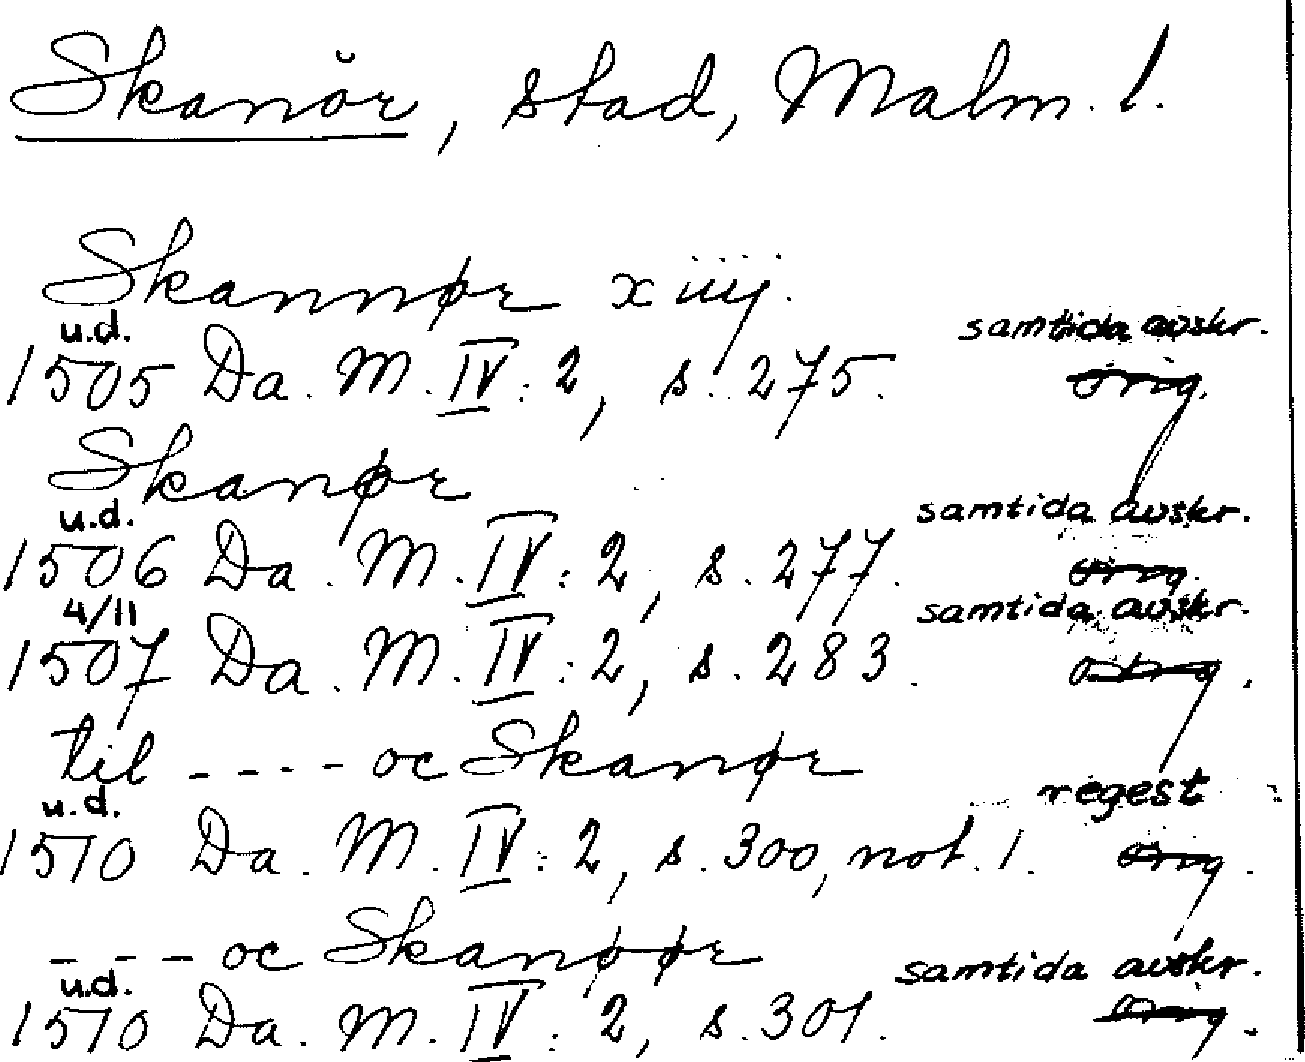 Skanör, stad, Malm. l.
Skannør xiiij.
u.d. samtida avskr.
1505 Da. M. IV:2, s. 275. orig.
Skanør
u.d. samtida avskr.
1506 Da. M. IV:2, s. 277. orig.
4/11 samtida avskr.
1507 Da. M. IV:2, s. 283. orig.
til ---- oc Skanør
u.d. regest
1510 Da. M. IV:2, s. 300, not. 1. orig.
--- oc Skanøør
u.d. samtida avskr.
1510 Da. M. IV:2, s. 301. orig.